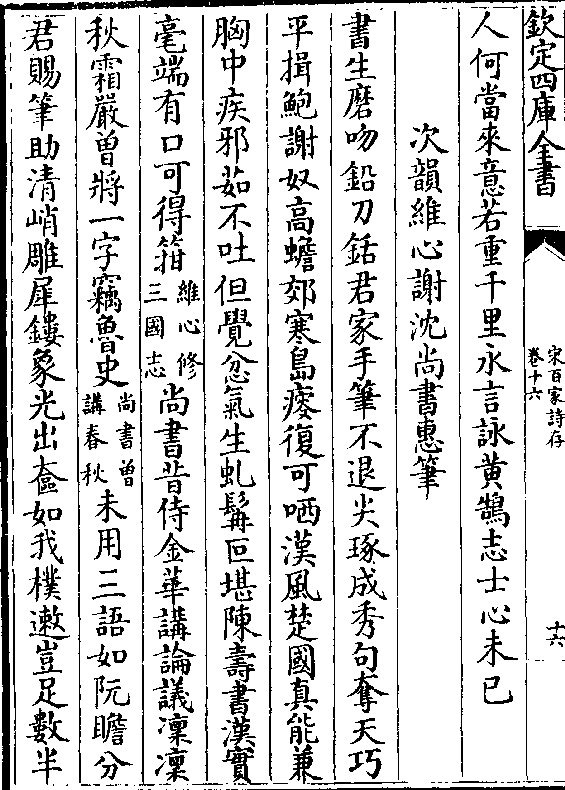 欽定四庫全書
宋百家詩存
卷十六
十六
人何當來意若重千里永言詠黄鵠志士心未已
次韻維心謝沈尚書惠筆
書生磨吻鉛刀銛君家手筆不退尖琢成秀句奪天巧
平揖鮑謝奴高蟾郊寒島瘦復可哂漢風楚國真能兼
胸中疾邪茹不吐但覺忿氣生虬髯叵堪陳壽書漢寳
毫端有口可得箝維心修三國志尚書昔侍金華講論議凜凜
秋霜嚴曽將一字竊魯史尚書曽講春秋未用三語如阮瞻分
君賜筆助清峭雕犀鏤象光出奩如我樸遬豈足數半